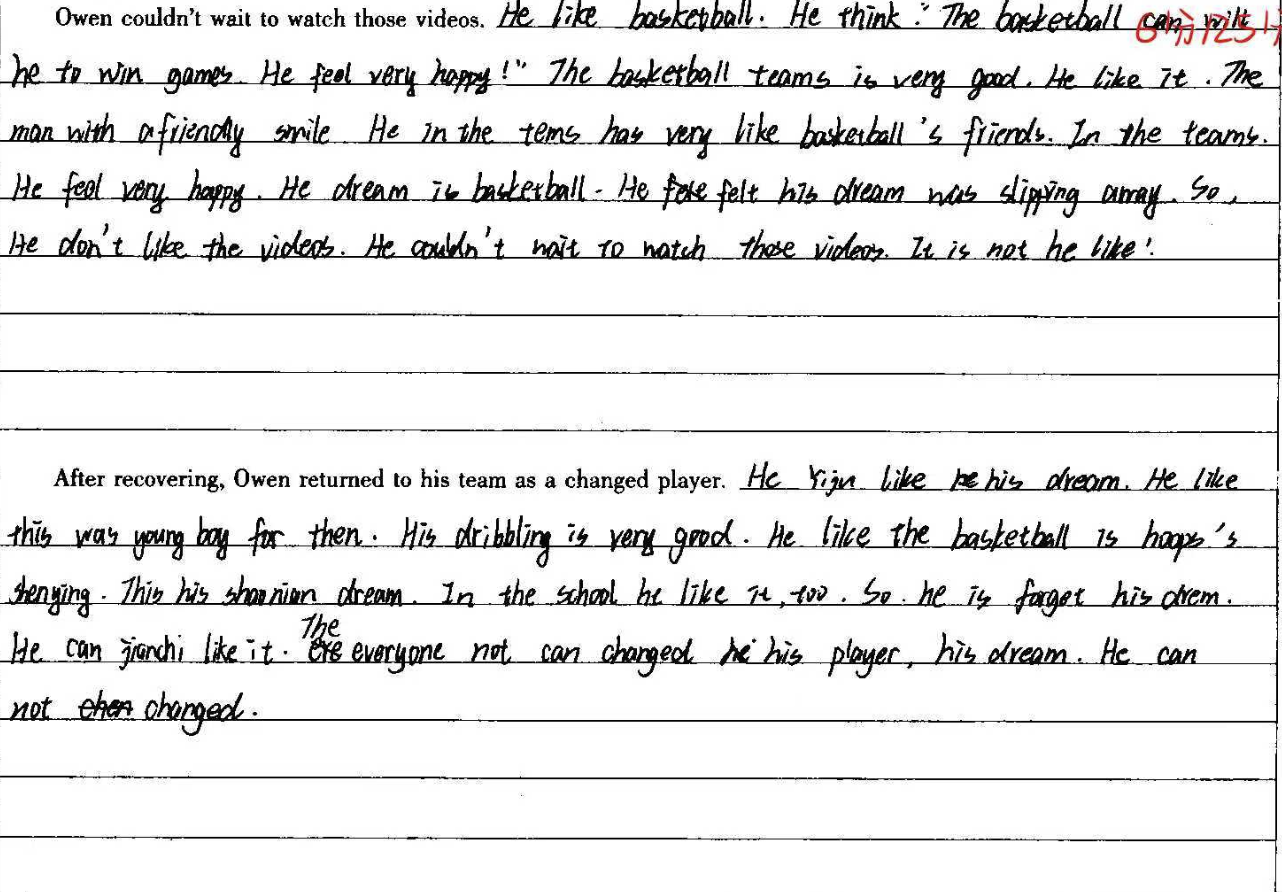 Owen couldn't wait to watch those videos. He like basketball. He think: "The basketball can with
he to win games. He feel very happy!" The basketball teams is very good. He like it. The
man with a friendly smile He in the tems has very like basketball's friends. In the teams.
He feel very happy. He dream is basketball. He felt his dream was slipping away. So,
He don't like the videos. He couldn't wait to watch those videos. It is not he like!
After recovering, Owen returned to his team as a changed player. He like his dream. He like
this was young boy for then. His dribbling is very good. He like the basketball is hoops's
shenying. This his shaonian dream. In the school he like it, too. So. he is forget his drem.
He can jianchi like it. The everyone not can changed his player, his dream. He can
not changed.